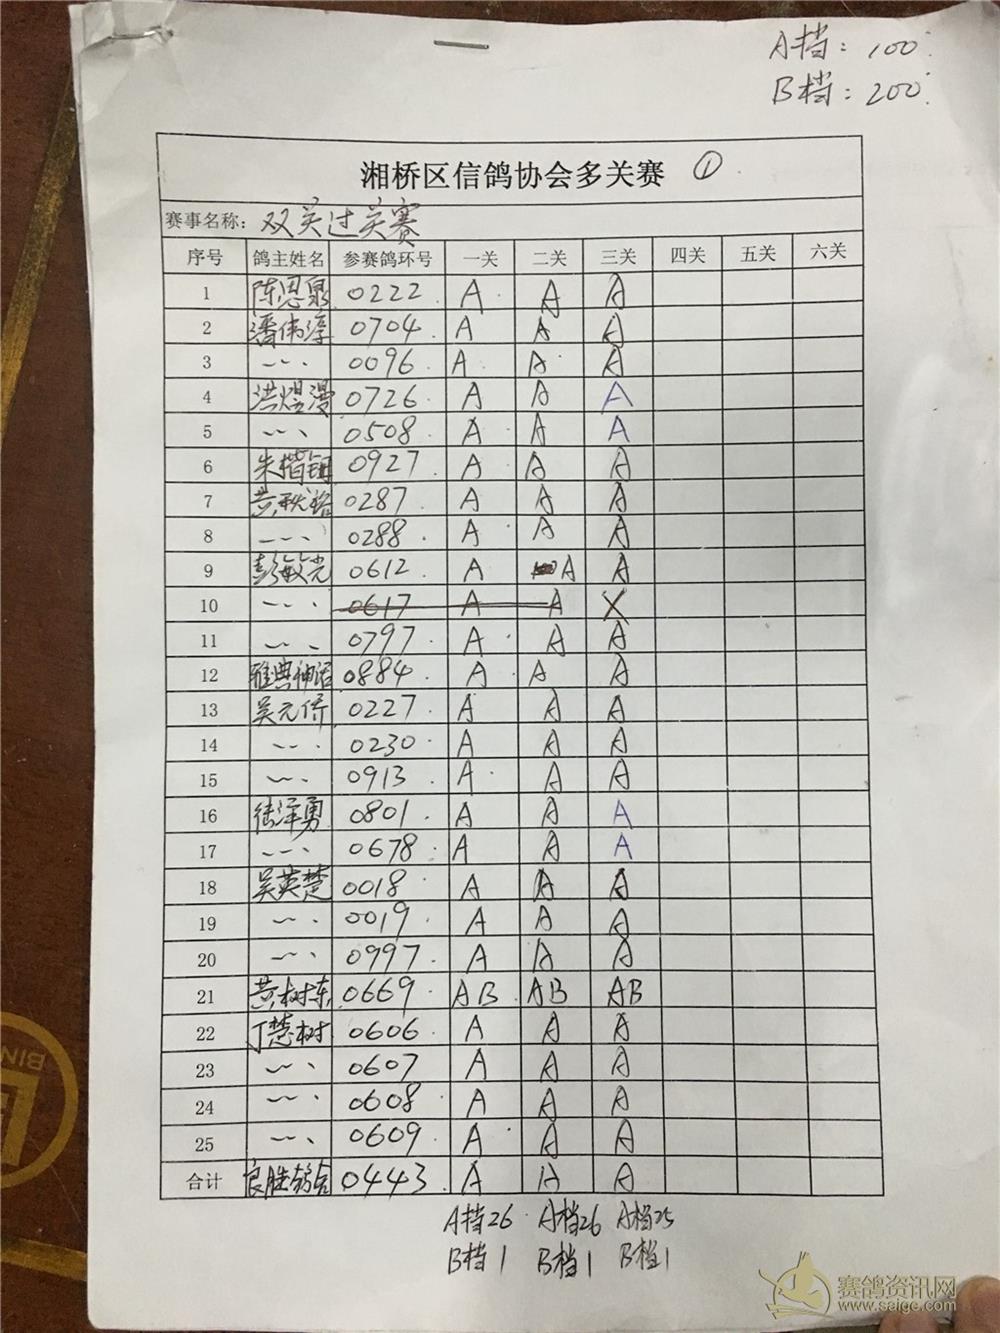 A档：100
B档：200
湘桥区信鸽协会多关赛 ①
赛事名称：双关过关赛
序号 鸽主姓名 参赛鸽环号 一关 二关 三关 四关 五关 六关
1 陈恩泉 0222 A A A
2 潘伟淳 0704 A A A
3 〃 0096 A A A
4 洪煜漫 0726 A A A
5 〃 0508 A A A
6 朱楷钿 0927 A A A
7 黄秋裕 0287 A A A
8 〃 0288 A A A
9 彭敏光 0612 A A A
10 〃 0617 A A X
11 〃 0797 A A A
12 雅典神话 0884 A A A
13 吴元侨 0227 A A A
14 〃 0230 A A A
15 〃 0913 A A A
16 泽勇 0801 A A A
17 〃 0678 A A A
18 吴英楚 0018 A A A
19 〃 0019 A A A
20 〃 0997 A A A
21 黄树东 0669 AB AB AB
22 丁慧树 0606 A A A
23 〃 0607 A A A
24 〃 0608 A A A
25 〃 0609 A A A
合计 良胜鸽舍 0443 A A A
A档26 A档26 A档25
B档1 B档1 B档1
赛鸽资讯网
www.saige.com
BIN